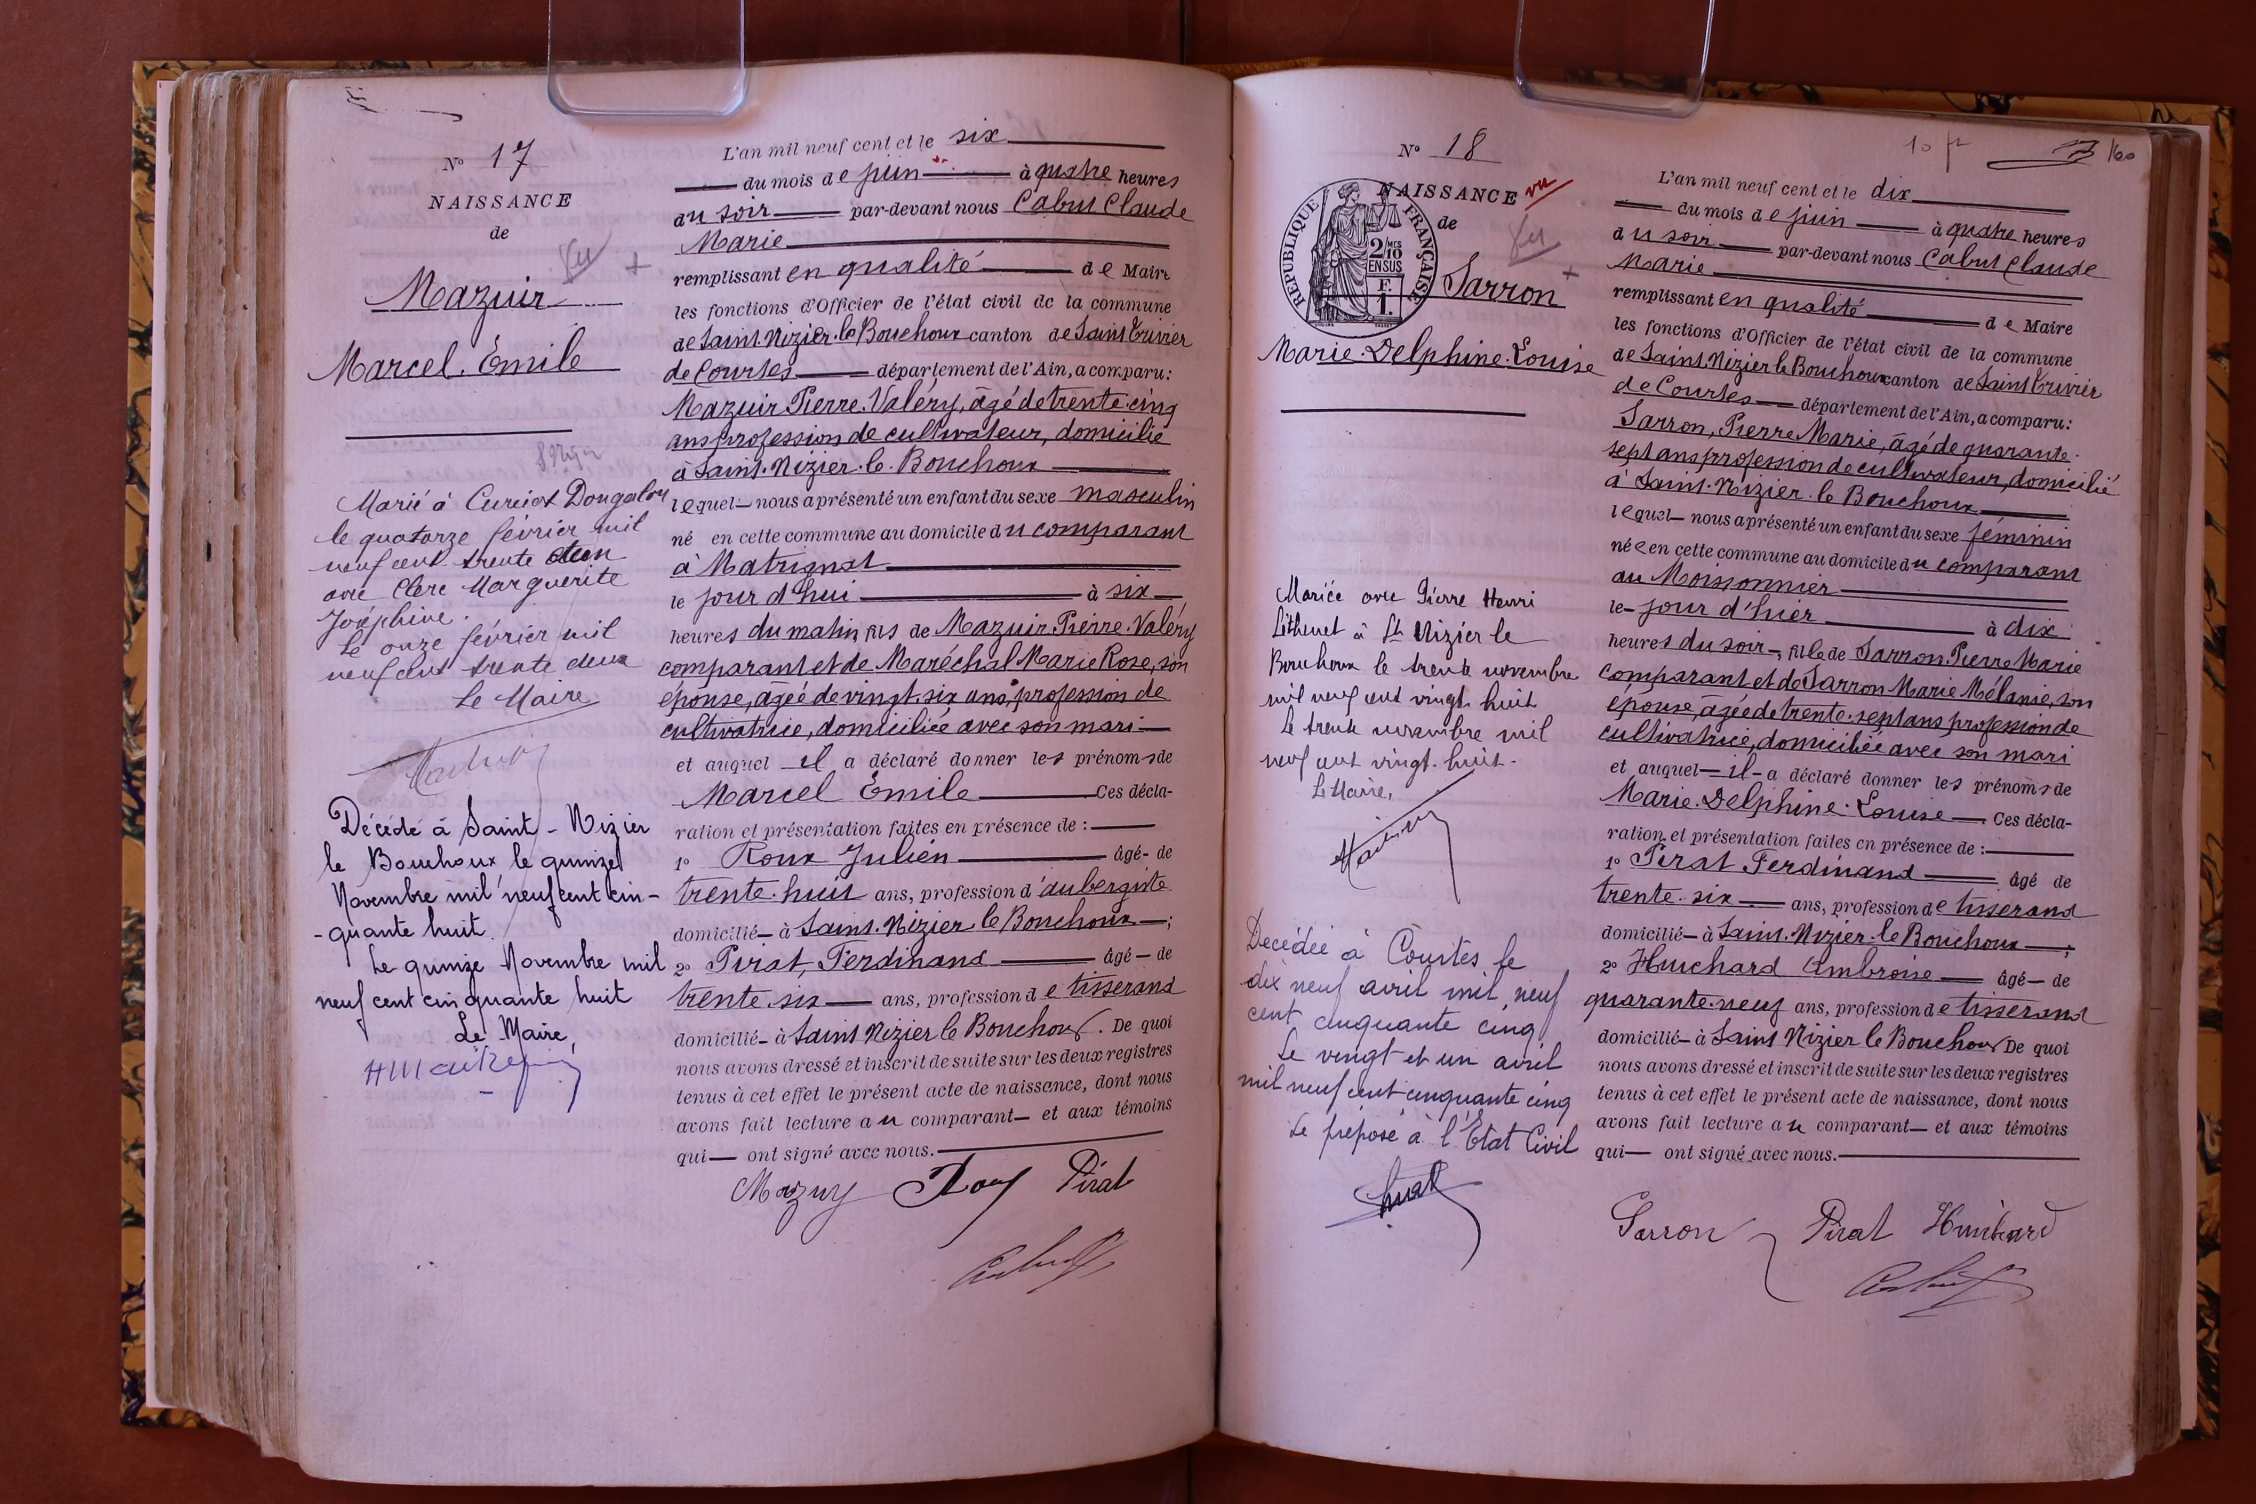 N° 17
NAISSANCE
de
Vu
Mazuir
Marcel. Emile
Marié à Curciat Dongalon
le quatorze février mil
neuf cent trente
avec Clerc Marguerite
Joséphine.
Le onze février mil
neuf cent trente deux
Le Maire
Décédé à Saint-Nizier
le Bouchoux le quinze
Novembre mil neuf cent cin-
-quante huit.
Le quinze Novembre mil
neuf cent cinquante huit
Le Maire,
L'an mil neuf cent et le six
du mois de juin à quatre heures
du soir par-devant nous Cabut Claude
Marie
remplissant en qualité de Maire
les fonctions d'Officier de l'état civil de la commune
de Saint-Nizier-le-Bouchoux canton de Saint Trivier
de Courtes département de l'Ain, a comparu:
Mazuir Pierre-Valéry, âgé de trente-cinq
ans profession de cultivateur, domicilié
à Saint-Nizier-le-Bouchoux
lequel nous a présenté un enfant du sexe masculin
né en cette commune au domicile du comparant
à Matrignat
le jour d'hui à six
heures du matin fils de Mazuir Pierre-Valéry
comparant et de Maréchal Marie Rose, son
épouse, âgée de vingt-six ans, profession de
cultivatrice, domiciliée avec son mari
et auquel il a déclaré donner les prénoms de
Marcel Emile Ces décla-
ration et présentation faites en présence de :
1° Roux Julien âgé de
trente-huit ans, profession d'aubergiste
domicilié à Saint-Nizier le Bouchoux ;
2° Pirat, Ferdinand âgé de
trente-six ans, profession de tisserand
domicilié à Saint Nizier le Bouchoux. De quoi
nous avons dressé et inscrit de suite sur les deux registres
tenus à cet effet le présent acte de naissance, dont nous
avons fait lecture au comparant et aux témoins
qui ont signé avec nous.
Mazuy Roux Pirat
Cabut
N° 18
NAISSANCE vu
de
Vu
RÉPUBLIQUE FRANÇAISE
2/10
EN SUS
F.
1.
Sarron
Marie-Delphine-Louise
Mariée avec Pierre Henri
à St Nizier le
Bouchoux le trente novembre
mil neuf cent vingt-huit
Le trente novembre mil
neuf cent vingt-huit.
Le Maire,
Decédée à Courtes le
dix neuf avril mil neuf
cent cinquante cinq
Le vingt et un avril
mil neuf cent cinquante cinq
Le préposé à l'Etat Civil
L'an mil neuf cent et le dix
du mois de juin à quatre heures
du soir par-devant nous Cabut Claude
Marie
remplissant en qualité de Maire
les fonctions d'Officier de l'état civil de la commune
de Saint Nizier le Bouchoux canton de Saint Trivier
de Courtes département de l'Ain, a comparu:
Sarron, Pierre Marie, âgé de quarante-
sept ans profession de cultivateur, domicilié
à Saint-Nizier-le Bouchoux
lequel nous a présenté un enfant du sexe féminin
née en cette commune au domicile du comparant
au Moissonnier
le jour d'hier à dix
heures du soir, fille de Sarron Pierre Marie
comparant et de Sarron Marie Mélanie, son
épouse, âgée de trente-sept ans profession de
cultivatrice, domiciliée avec son mari
et auquel il a déclaré donner les prénoms de
Marie-Delphine-Louise Ces décla-
ration et présentation faites en présence de :
1° Pirat Ferdinand âgé de
trente-six ans, profession de tisserand
domicilié à Saint-Nizier-le Bouchoux ;
2° Huichard Ambroise âgé de
quarante-neuf ans, profession de tisserand
domicilié à Saint Nizier le Bouchoux De quoi
nous avons dressé et inscrit de suite sur les deux registres
tenus à cet effet le présent acte de naissance, dont nous
avons fait lecture au comparant et aux témoins
qui ont signé avec nous.
Sarron Pirat Huichard
Cabut